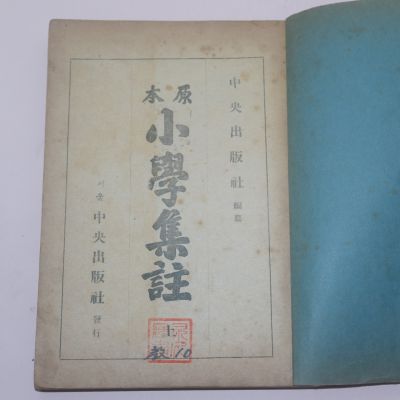 中央出版社 編纂
原本
小學集註
上
서울 中央出版社 發行
敎 10